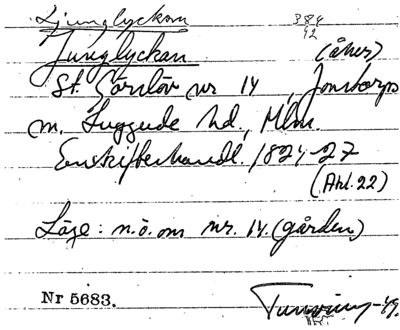 Ljunglyckan 384
42
Junglyckan (åker)
St. Görslöv nr 14, Jonstorps
m. Luggude hd., Mlm.
Enskifteshandl. 1824-27
(Ahl. 22)
Läge: n.ö. om nr. 14. (gården)
Nr 5683.